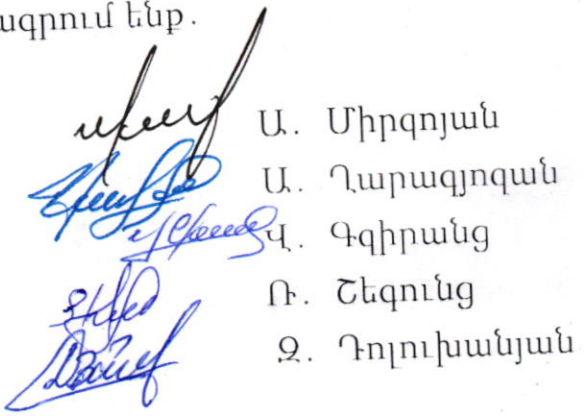 ագրում ենք.
Ա. Միրզոյան
Ա. Ղարագյոզյան
Վ. Գզիրանց
Ռ. Շեգունց
Զ. Դոլուխանյան